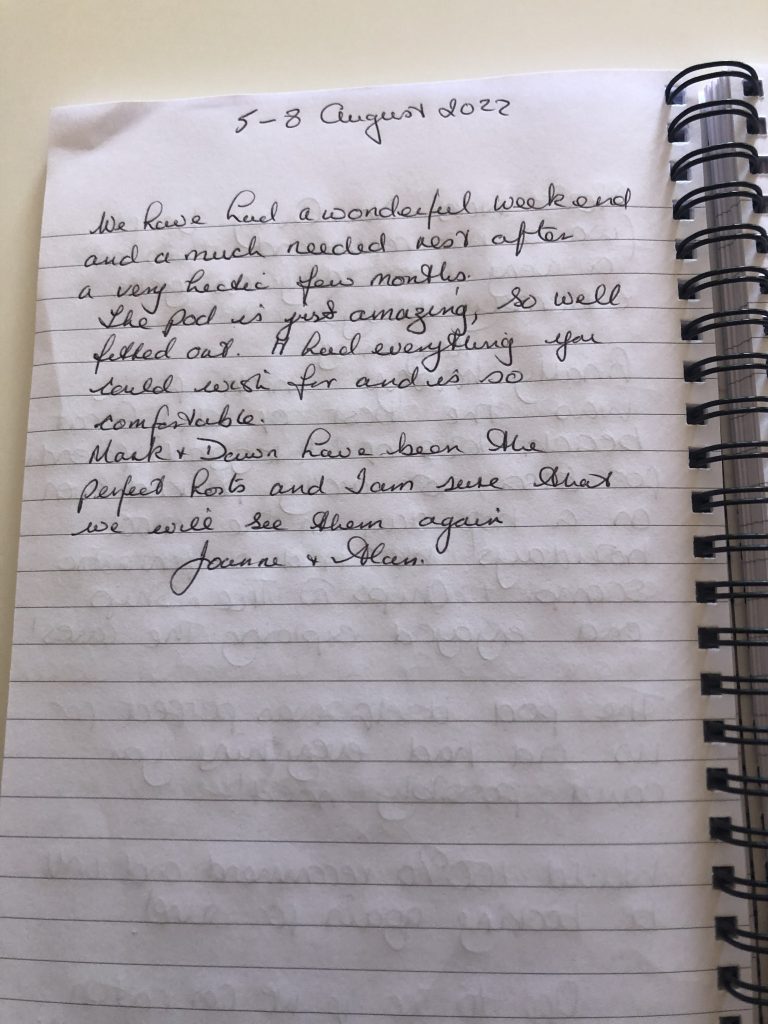 5-8 August 2022
We have had a wonderful weekend
and a much needed rest after
a very hectic few months.
The pod is just amazing, so well
fitted out. It had everything you
could wish for and is so
comfortable.
Mark & Dawn have been the
perfect hosts and I am sure that
we will see them again
Joanne & Alan.